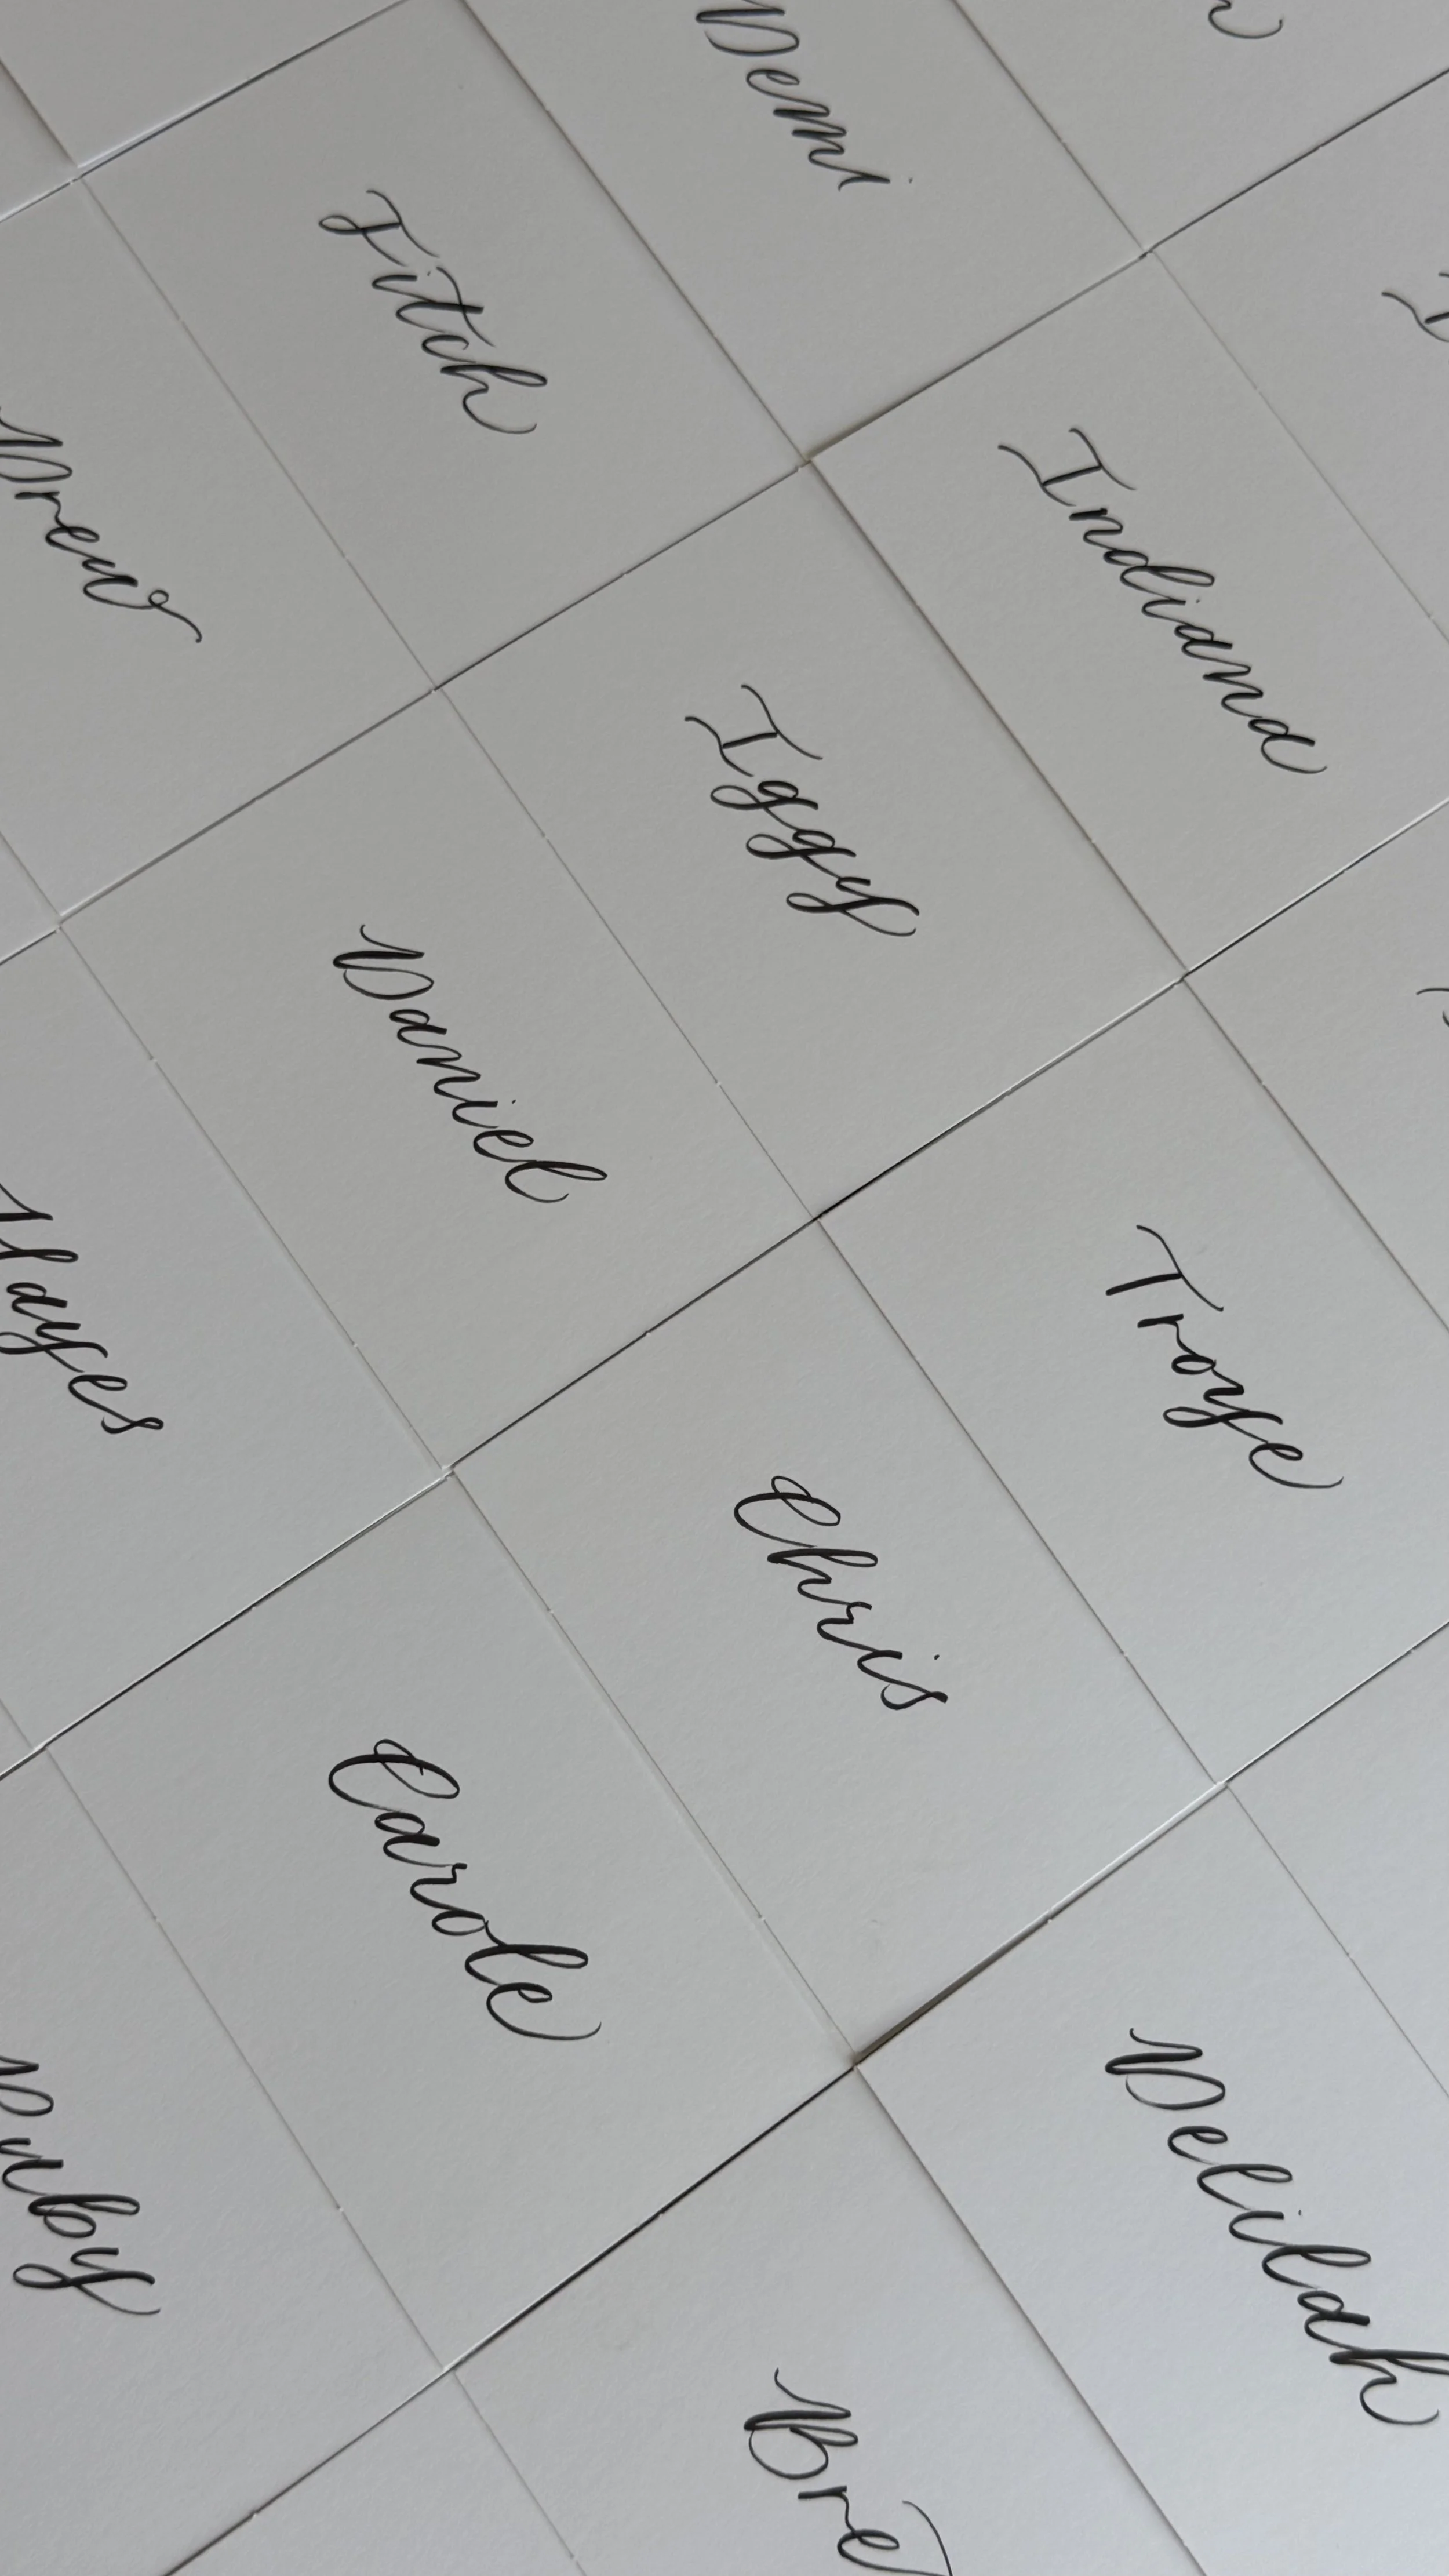 Demi
Fitch
Drew
Indiana
Iggy
Daniel
Hayes
Troye
Chris
Carole
Delilah